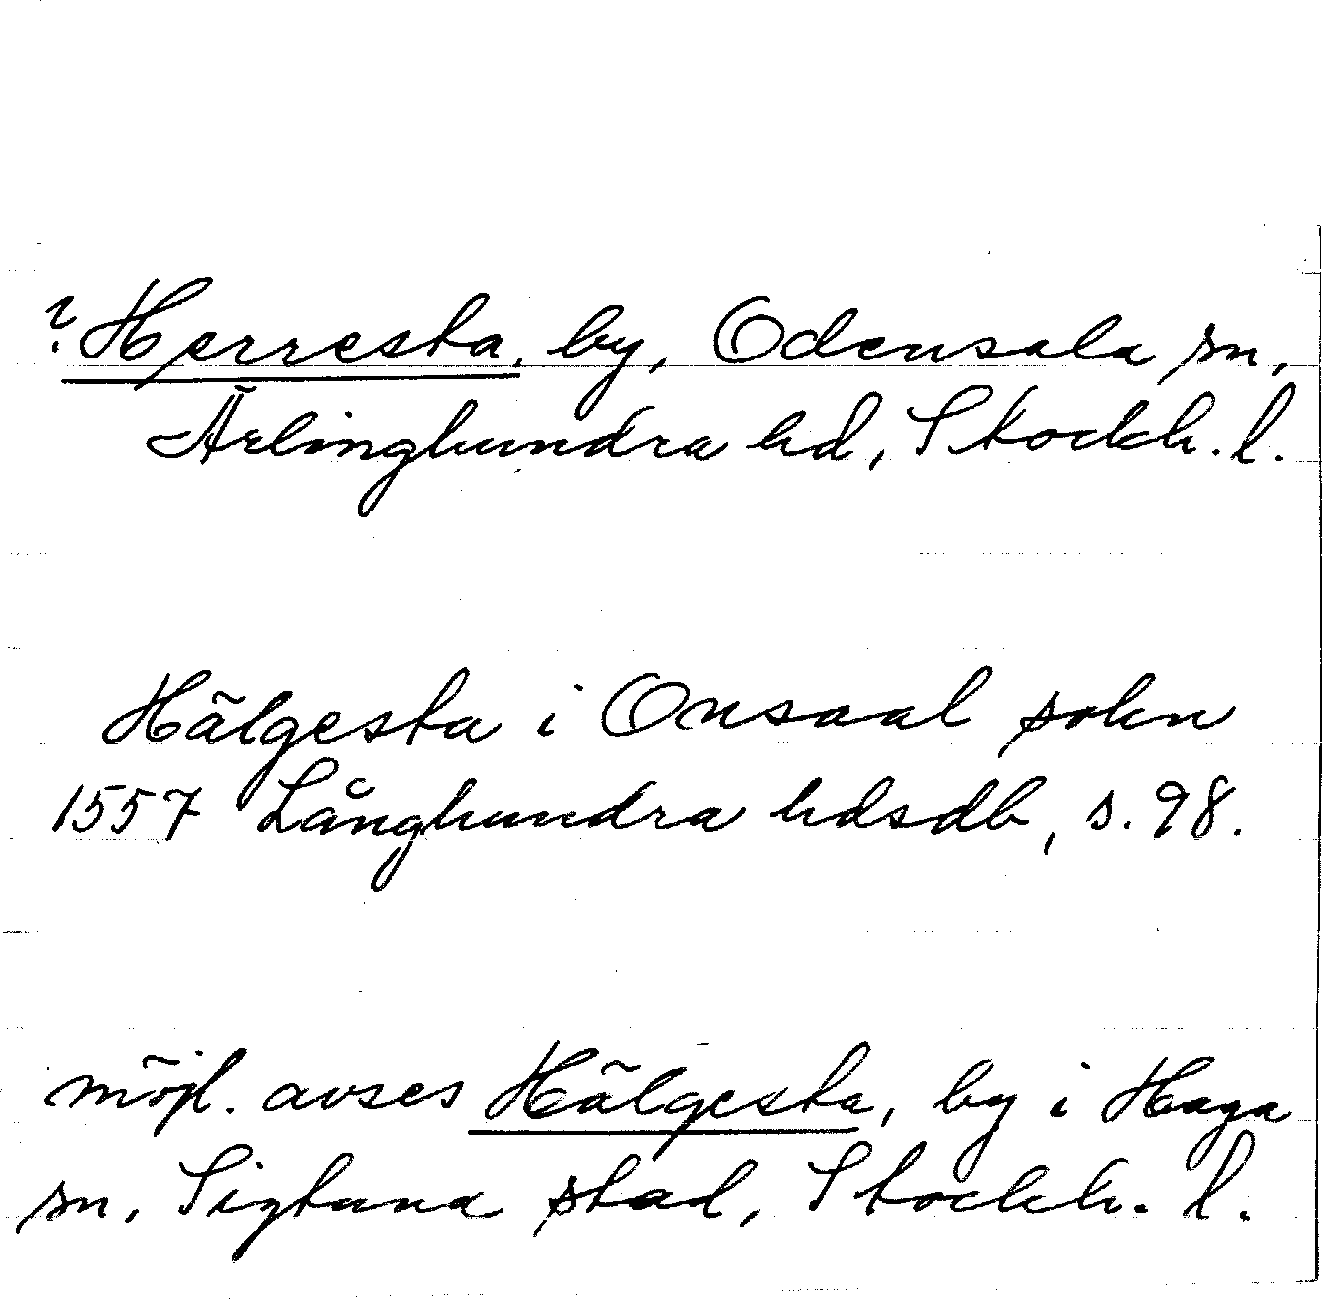 ? Herresta, by, Odensala sn,
Ärlinghundra hd, Stockh. l.
Hälgesta i Onsaal sokn
1557 Långhundra hdsdb, s. 98.
möjl. avses Hälgesta, by i Haga
sn, Sigtuna stad, Stockh. l.